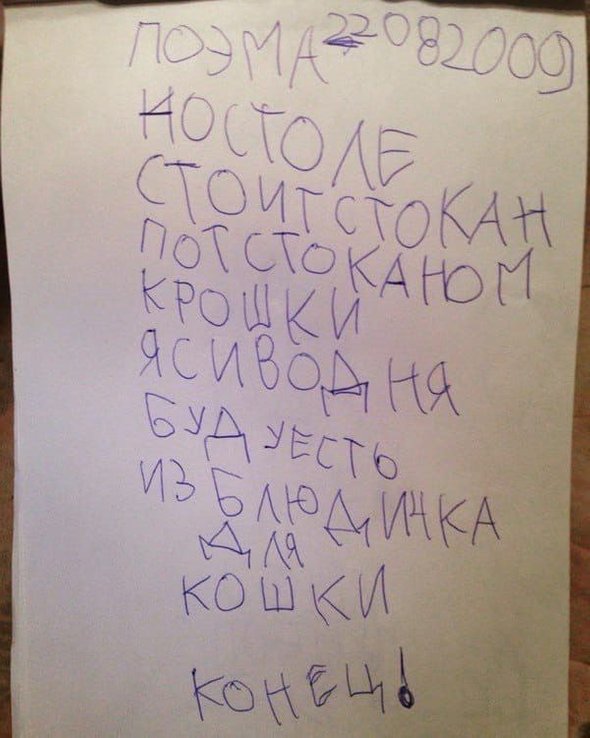 ПОЭМА 22082009
НОСТОЛЕ
СТОИТ СТОКАН
ПОТСТОКАНОМ
КРОШКИ
ЯСИВОДНЯ
БУДУЕСТЬ
ИЗ БЛЮДИЧКА
ДЛЯ
КОШКИ
КОНЕЦ!